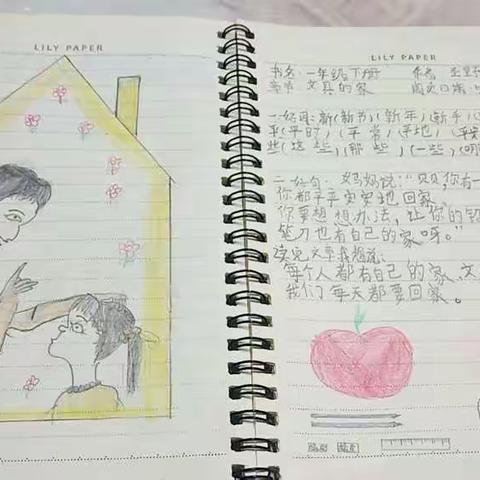 LILY PAPER
LILY PAPER
书名:一年级下册 作者
章节:文具的家 阅读日期:
一好词:新(新书)(新年)(新手)
平(平时)(平常)(平地)(平安
些(这些)(那些)(一些)(
二好句:妈妈说:“贝贝,你有一
你都平平安安地回家
你要想想办法,让你的铅
笔刀也有自己的家呀。”
读完文章我想说:
每个人都有自己的家,文
我们每天都要回家。